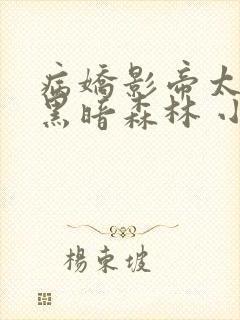 病嬌影帝太
黑暗森林 小
楊東坡